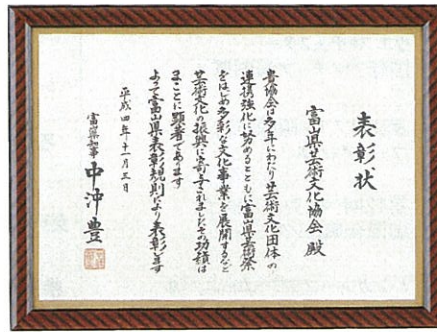 表彰状
富山県芸術文化協会 殿
貴協会は多年にわたり芸術文化団体の
連携強化に努めるとともに富山県芸術祭
をはじめ多彩な文化事業を展開するなど
芸術文化の振興に寄与されましたその功績は
まことに顕著であります
よって富山県表彰規則により表彰します
平成四年十一月三日
富山県知事 中沖豊